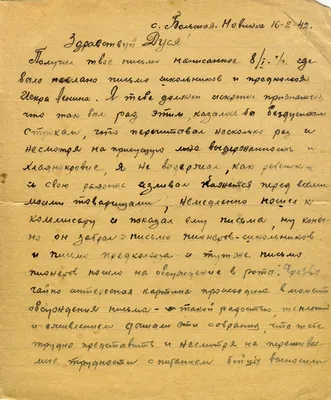 с. Большая-Новинка 16-2-42.
Здравствуй Дуся!
Получил твое письмо написанное 8/I-с/г. где
было послано письмо школьников и
Искра Ленина. Я тебе должен искренно признаться
что так был рад этим казалось бы
строкам, что перечитывал несколько раз и
несмотря на присущую мне выдержанность и
хладнокровие, я не выдержал, как ребенок
и свою радость изливал перед всеми
моими товарищами, немедленно пошел к
комиссару и показал ему письма, ну конеч-
но он забрал письмо пионеров-школьников
и письмо и тут же письмо
пионеров пошло на обсуждение в роты. Чрезвы-
чайно интересная картина происходила в момент
обсуждения письма - такой радостью, теплотой
и оживлением дышали эти собрания, что тебе
трудно представить и несмотря на
трудности с питанием бойцы выносили